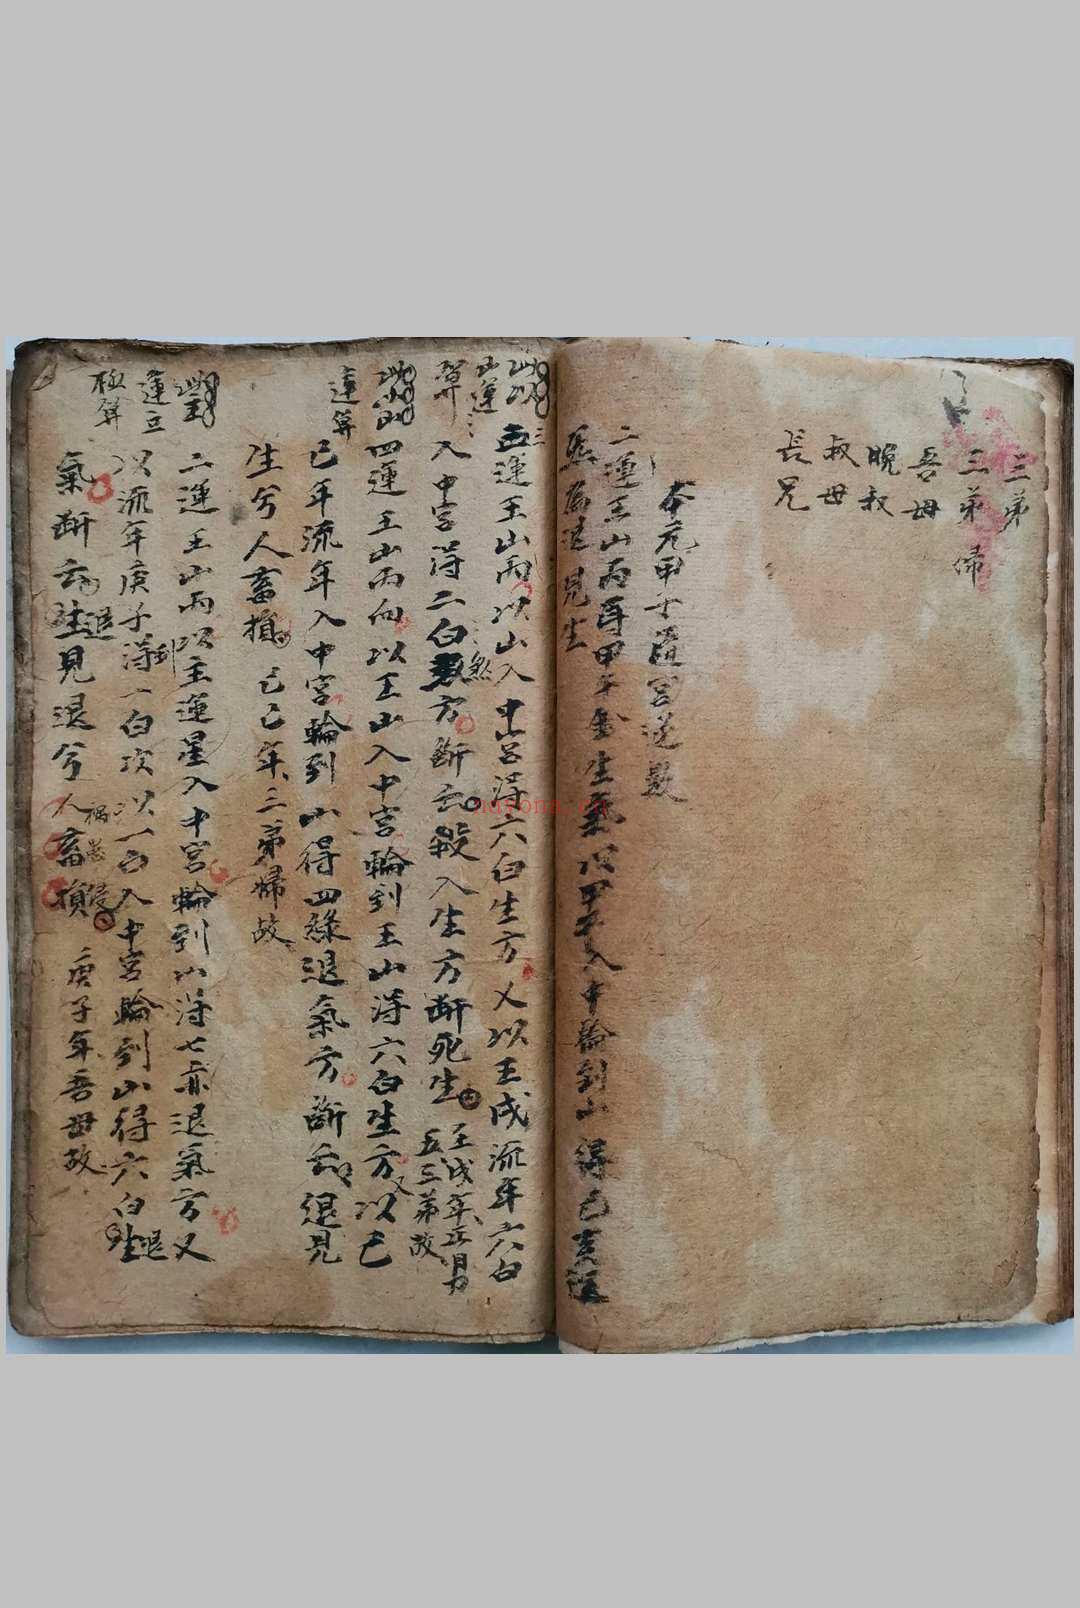 三弟
三弟 婦
吾母
晚叔
叔母
長兄
本元甲子值宮逆數
二運壬山丙 甲午 生氣以甲午入中輪到山得己亥退
為退見生
此以
山運
算
五運壬山丙以山入中宮得六白生方又以壬戌流年六白
三
入中宮得二白煞方斷云殺入生方斷死生
壬戌年正月
五三弟故
此以
四運壬山丙向以壬山入中宮輪到壬山得六白生方又以己
運算
巳年流年入中宮輪到山得四綠退氣方斷云退見
生兮人畜損 己巳年三弟婦故
運立
極算
二運壬山丙以主運星入中宮輪到山得七赤退氣方又
以流年庚子得到一白次以一白入中宮輪到山得六白生退
氣斷云生退見退兮人畜損 庚子年吾母故
禍
侵
nayona.cn